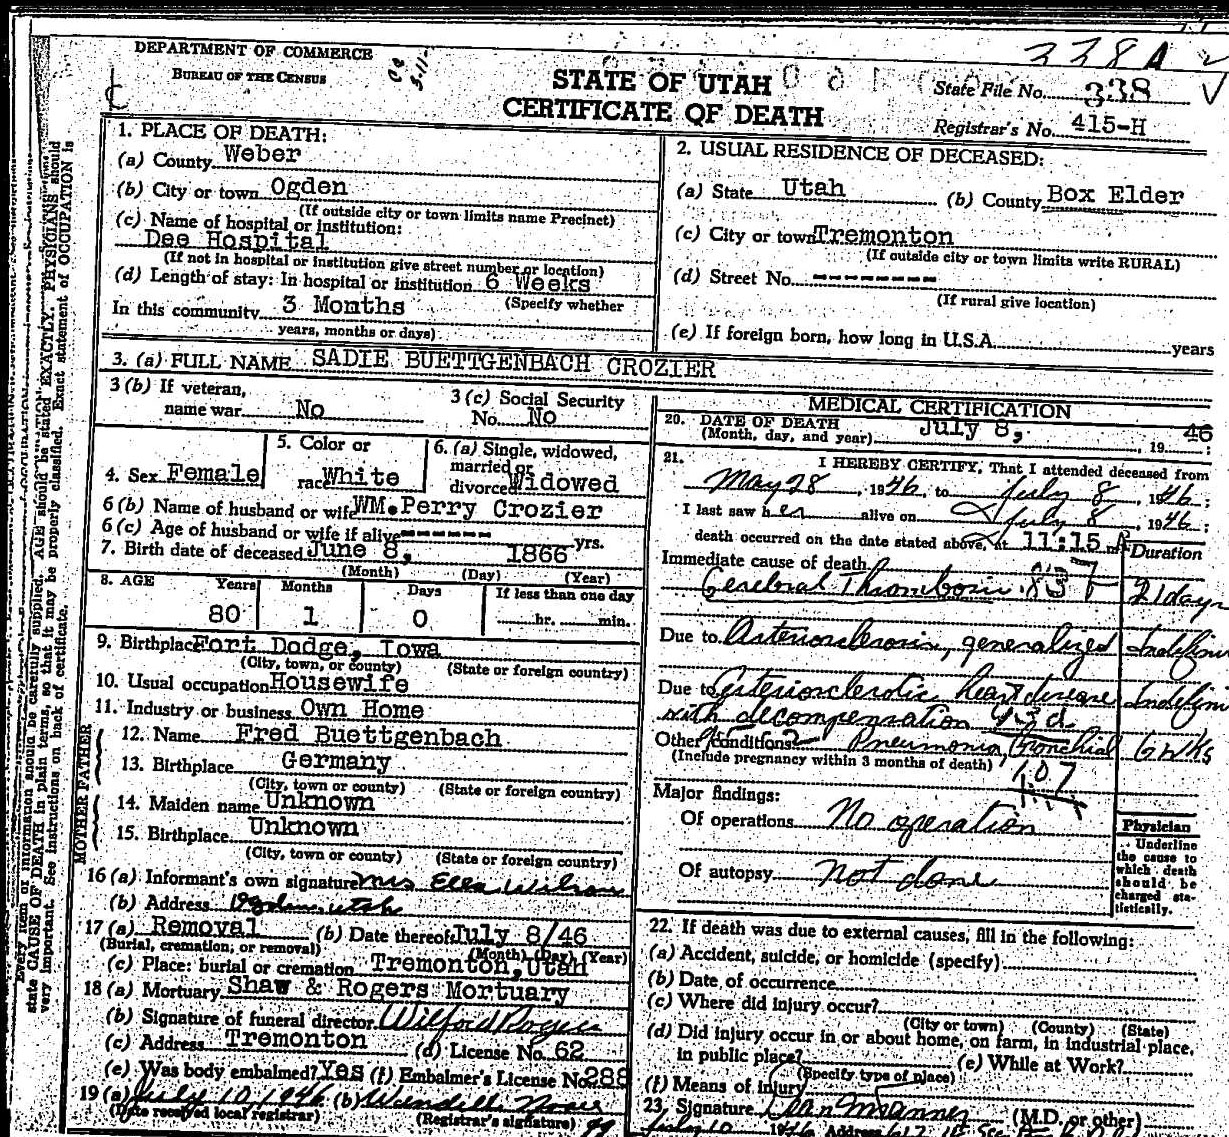 DEPARTMENT OF COMMERCE
BUREAU OF THE CENSUS
STATE OF UTAH
CERTIFICATE OF DEATH
228A
State File No. 338
Registrar's No. 415-H
1. PLACE OF DEATH:
(a) County Weber
(b) City or town Ogden
(If outside city or town limits name Precinct)
(c) Name of hospital or institution:
Dee Hospital
(If not in hospital or institution give street number or location)
(d) Length of stay: In hospital or institution 6 Weeks
(Specify whether
In this community 3 Months
years, months or days)
2. USUAL RESIDENCE OF DECEASED:
(a) State Utah (b) County Box Elder
(c) City or town Tremonton
(If outside city or town limits write RURAL)
(d) Street No. -------
(If rural give location)
(e) If foreign born, how long in U.S.A. years
3. (a) FULL NAME SADIE BUETTGENBACH CROZIER
3 (b) If veteran,
name war No
3 (c) Social Security
No. No
4. Sex Female
5. Color or
race White
6. (a) Single, widowed,
married or
divorced Widowed
6 (b) Name of husband or wife WM. Perry Crozier
6 (c) Age of husband or wife if alive ------ yrs.
7. Birth date of deceased June 8, 1866
(Month) (Day) (Year)
8. AGE Years Months Days If less than one day
80 1 0 hr. min.
9. Birthplace Fort Dodge, Iowa
(City, town, or county) (State or foreign country)
10. Usual occupation Housewife
11. Industry or business Own Home
FATHER
12. Name Fred Buettgenbach
13. Birthplace Germany
(City, town or county) (State or foreign country)
MOTHER
14. Maiden name Unknown
15. Birthplace Unknown
(City, town or county) (State or foreign country)
16 (a) Informant's own signature Mrs Ella Wilson
(b) Address Ogden, Utah
17 (a) Removal (b) Date thereof July 8/46
(Burial, cremation, or removal) (Month) (Day) (Year)
(c) Place: burial or cremation Tremonton, Utah
18 (a) Mortuary Shaw & Rogers Mortuary
(b) Signature of funeral director Wilford Rogers
(c) Address Tremonton (d) License No. 62
(e) Was body embalmed? Yes (f) Embalmer's License No. 288
19 (a) July 10, 1946 (b)
(Date received local registrar) (Registrar's signature)
MEDICAL CERTIFICATION
20. DATE OF DEATH
(Month, day, and year) July 8, , 19 46 ;
21. I HEREBY CERTIFY, That I attended deceased from
May 28 , 1946, to July 8 , 1946;
I last saw her alive on July 8 , 1946;
death occurred on the date stated above, at 11:15 m. Duration
Immediate cause of death
Cerebral Thrombosis 21 days
Due to Arteriosclerosis, generalized Indefin
Due to Arteriosclerotic heart disease Indefin
with decompensation
Other conditions Pneumonia, Bronchial 6 Wks
(Include pregnancy within 3 months of death) 107
Major findings:
Of operations No operation
Of autopsy Not done
Physician
Underline
the cause to
which death
should be
charged sta-
tistically.
22. If death was due to external causes, fill in the following:
(a) Accident, suicide, or homicide (specify)
(b) Date of occurrence
(c) Where did injury occur?
(City or town) (County) (State)
(d) Did injury occur in or about home, on farm, in industrial place,
in public place? (e) While at Work?
(Specify type of place)
(f) Means of injury
23. Signature (M.D. or other)
July 10 1946 Address
Every item of information should be carefully supplied. AGE should be stated EXACTLY. PHYSICIANS should
state CAUSE OF DEATH in plain terms, so that it may be properly classified. Exact statement of OCCUPATION is
very important. See instructions on back of certificate.